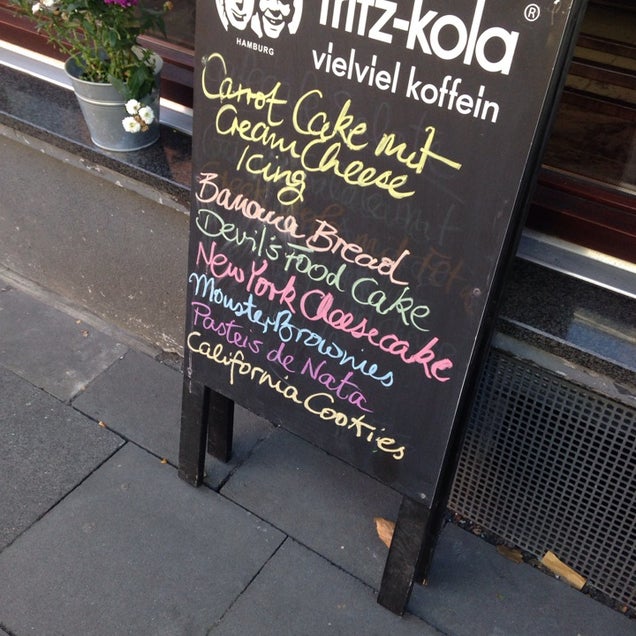 HAMBURG
fritz-kola
®
vielviel koffein
Carrot Cake mit
Cream Cheese
Icing
Banana Bread
Devil's Food Cake
New York Cheesecake
Monster Brownies
Pasteis de Nata
California Cookies